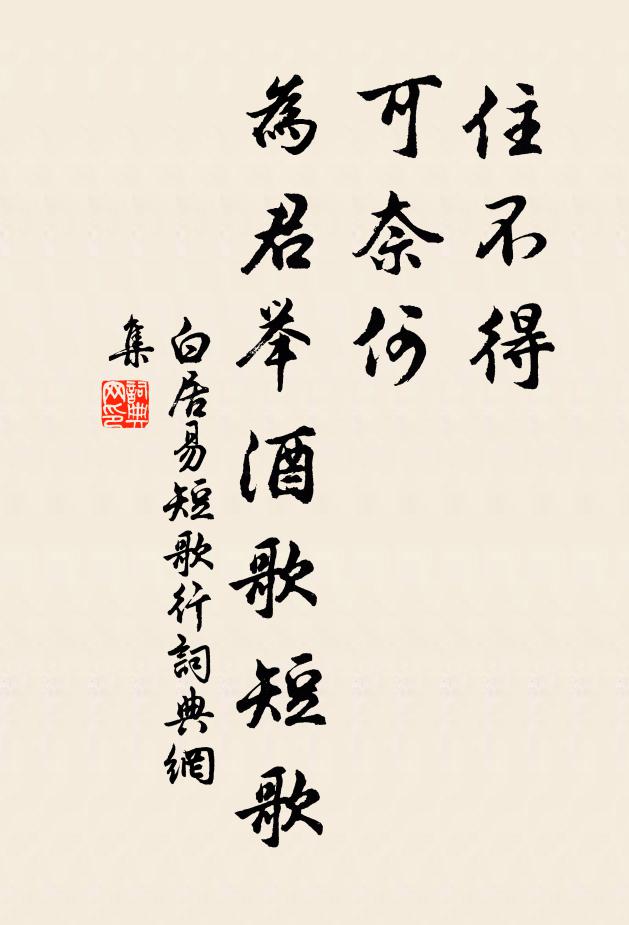 住不得
可奈何
為君举酒歌短歌
白居易短歌行詞典網
集
詞典網印